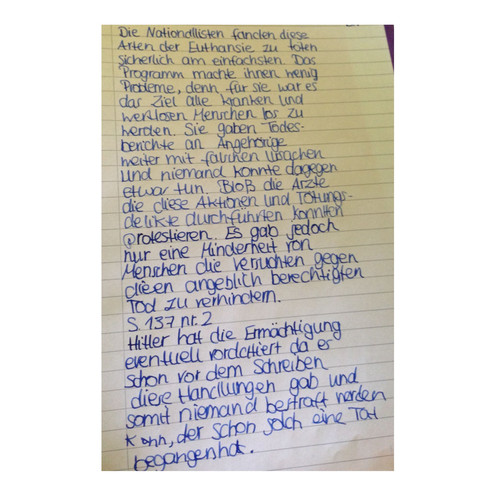 Die Nationallisten fanden diese
Arten der Euthansie zu töten
sicherlich am einfachsten. Das
Programm machte ihnen wenig
Probleme, denn für sie war es
das Ziel alle kranken und
wertlosen Menschen los zu
werden. Sie gaben Todes-
berichte an Angehörige
weiter mit falschen Usachen
und niemand konnte dagegen
etwas tun. Bloß die Ärzte
die diese Aktionen und Tötungs-
delikte durchführten konnten
protestieren. Es gab jedoch
nur eine Minderheit von
Menschen die versuchten gegen
diesen angeblich berechtigten
Tod zu verhindern.
S. 137 nr. 2
Hitler hat die Ermächtigung
eventuell vordatiert da es
schon vor dem Schreiben
diese Handlungen gab und
somit niemand bestraft werden
kann, der schon solch eine Tat
begangen hat.